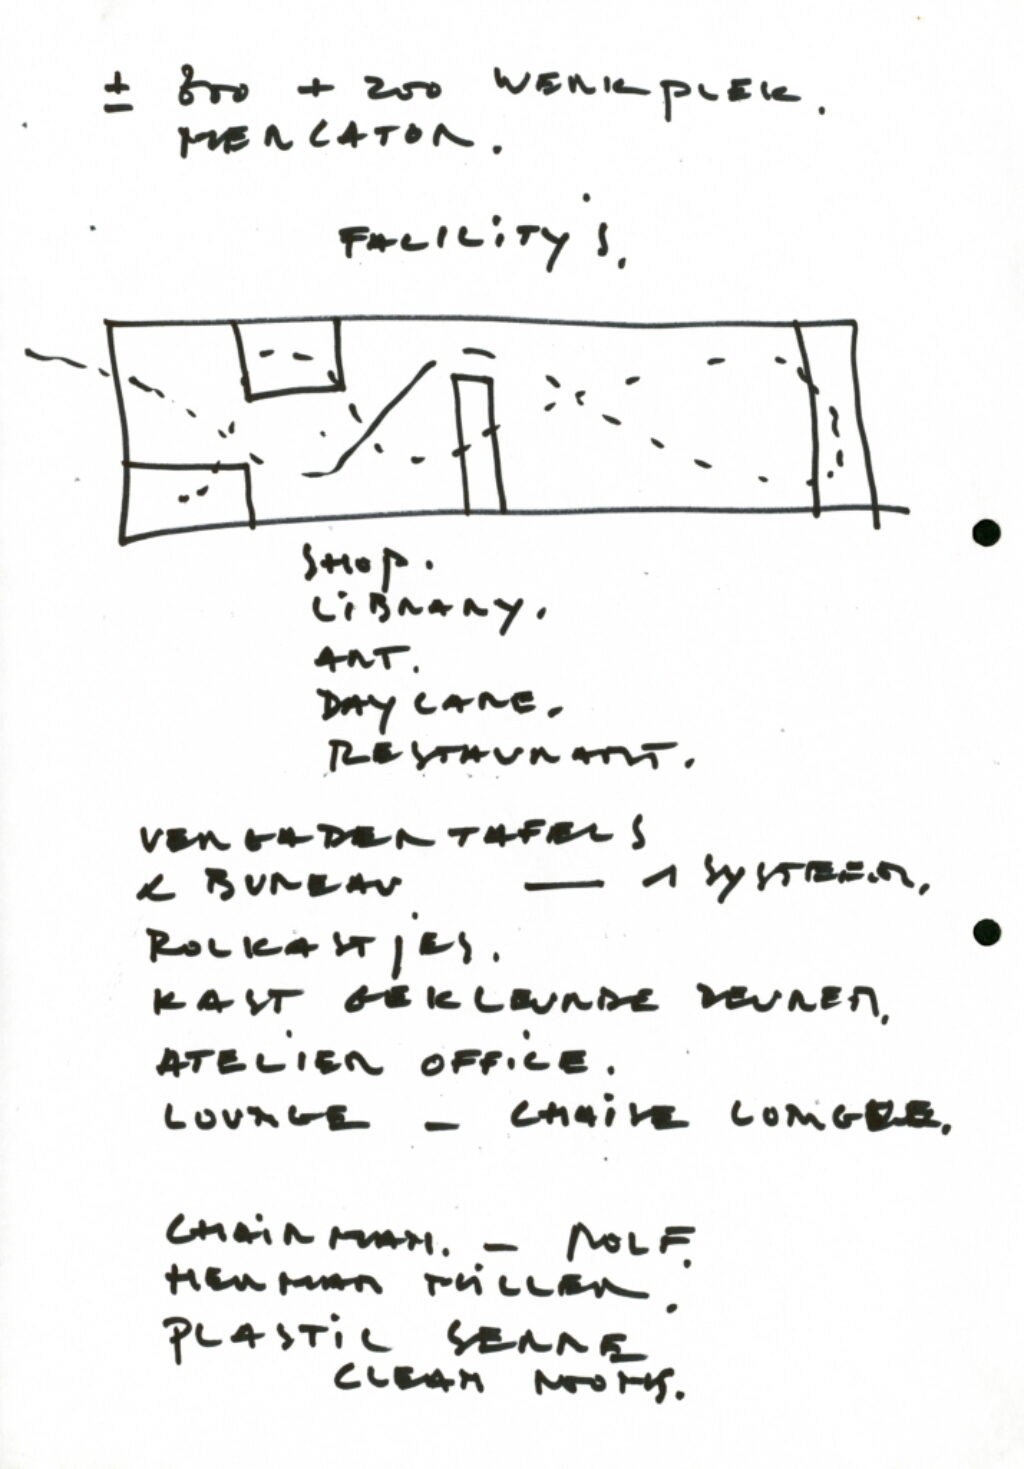 ± 800 + 200 WERKPLEK.
MERCATOR.
FACILITY'S.
SHOP.
LIBRARY.
ART.
DAY CARE.
RESTAURANT.
VERGADERTAFELS
& BUREAU — 1 SYSTEEM.
ROLKASTJES.
KAST GEKLEURDE DEUREN.
ATELIER OFFICE.
LOUNGE — CHAISE LONGUE.
CHAIRMAN. — ROLF.
HERMAN MILLER.
PLASTIC SERRE
CLEAN ROOMS.